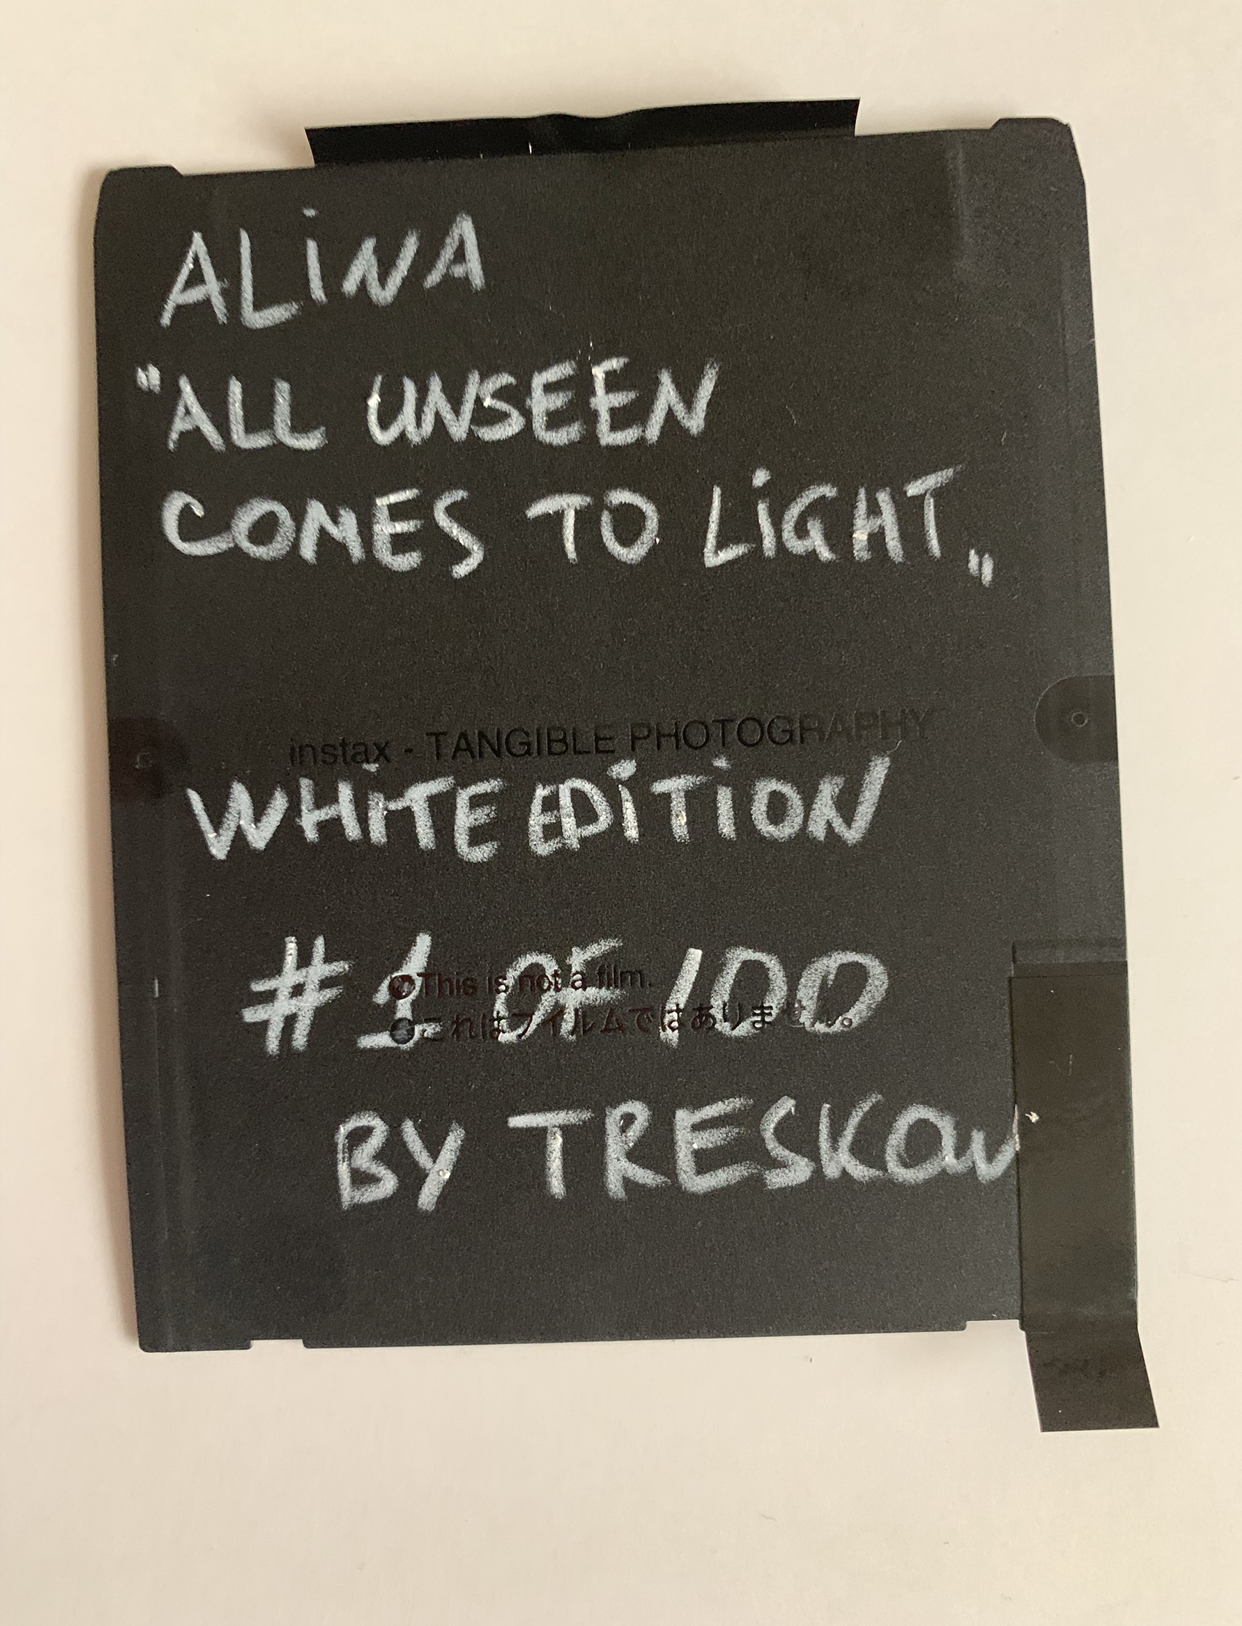 ALiNA
"ALL UNSEEN
COMES TO LiGHT„
instax - TANGIBLE PHOTOGRAPHY
WHiTE EDiTiON
# 1 OF 100
This is not a film.
これはフイルムではありません。
BY TRESKOW